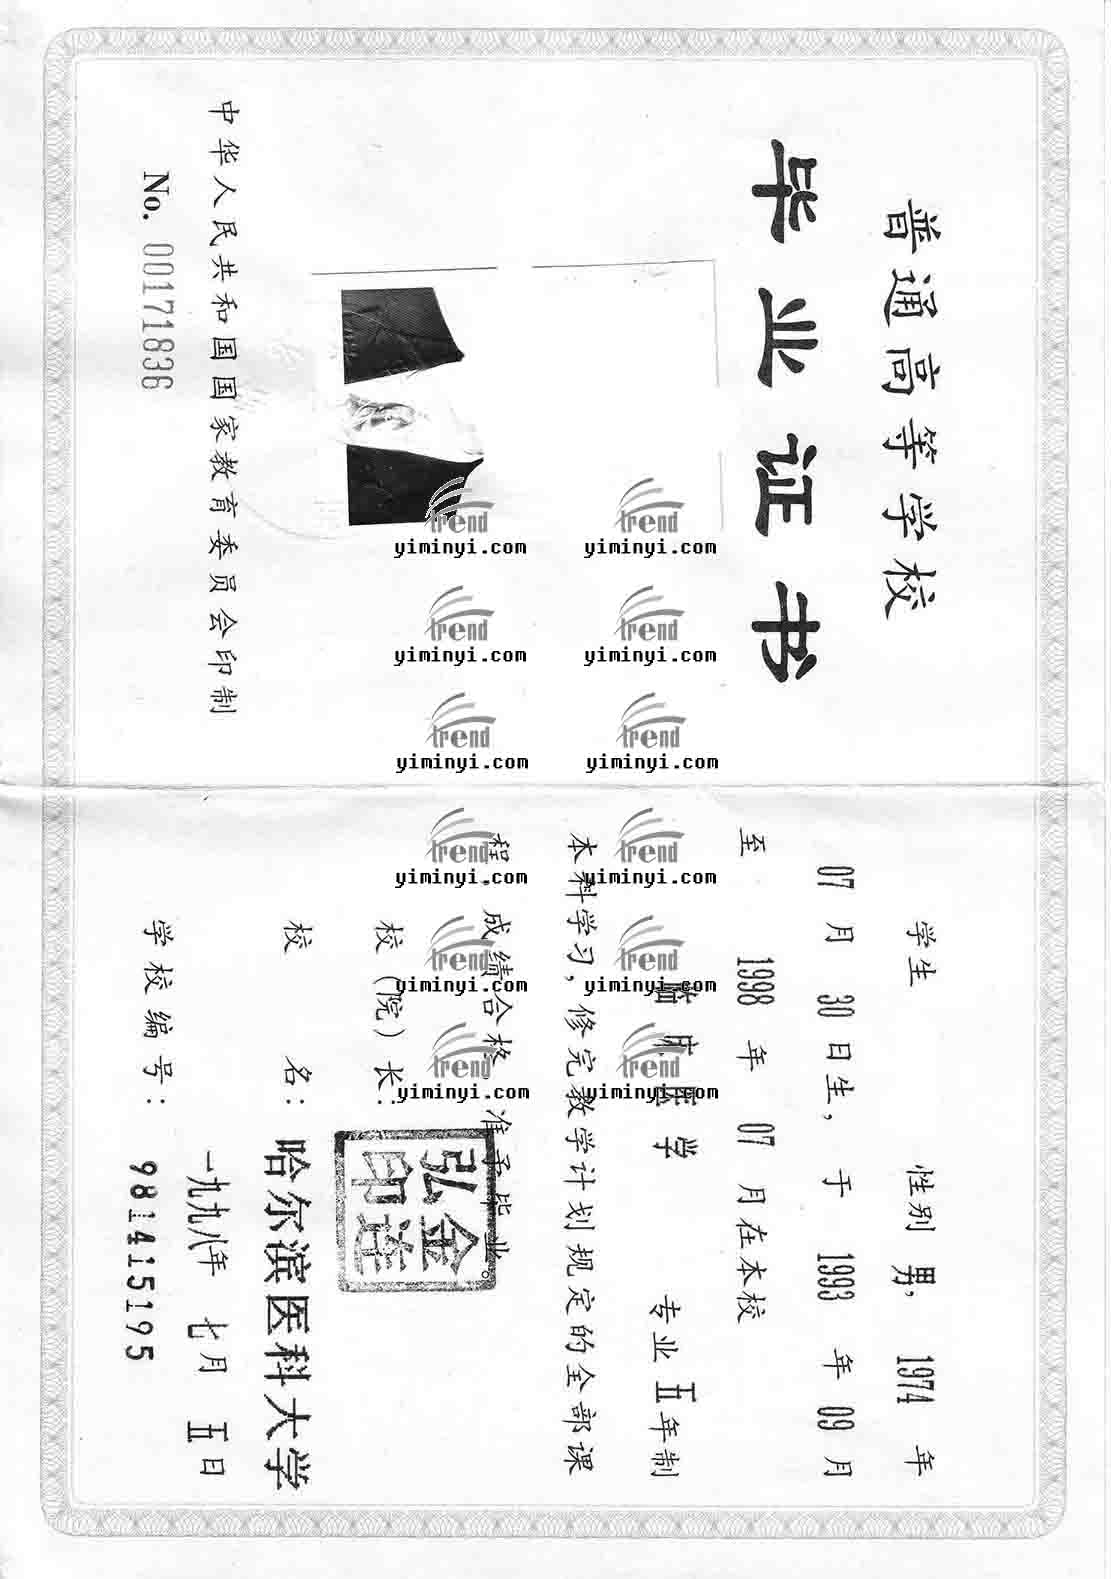 普通高等学校
毕业证书
中华人民共和国国家教育委员会印制
No. 00171836
学生 性别 男, 1974 年
07 月 30 日生, 于 1993 年 09 月
至 1998 年 07 月在本校
临床医学 专业 五 年制
本科学习, 修完教学计划规定的全部课
程, 成绩合格, 准予毕业。
校(院)长:
金弘
莲印
校 名: 哈尔滨医科大学
一九九八年 七月 五日
学校编号: 981415195
trend trend
yiminyi.com yiminyi.com
trend trend
yiminyi.com yiminyi.com
trend trend
yiminyi.com yiminyi.com
trend trend
yiminyi.com yiminyi.com
trend trend
yiminyi.com yiminyi.com
trend trend
yiminyi.com yiminyi.com